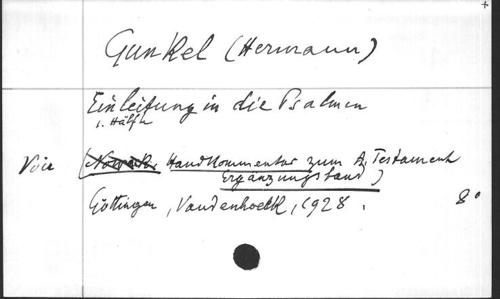 +
Gunkel (Hermann)
Einleitung in die Psalmen
1. Hälfte
Voir (Nowack, Handkommentar zum A. Testament
Ergänzungsband)
Göttingen, Vandenhoeck, 1928. 8°